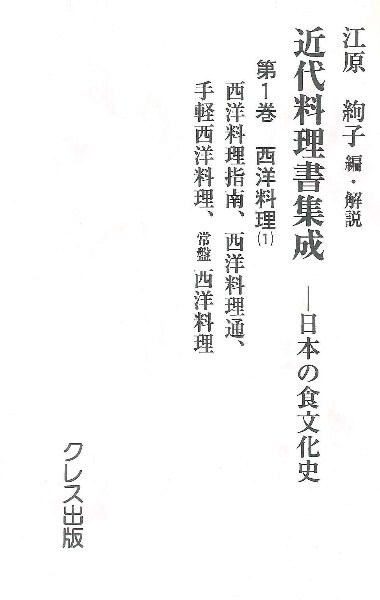 江原 絢子 編・解説
近代料理書集成 ―日本の食文化史
第1巻 西洋料理(1)
西洋料理指南、西洋料理通、
手軽西洋料理、常盤西洋料理
クレス出版